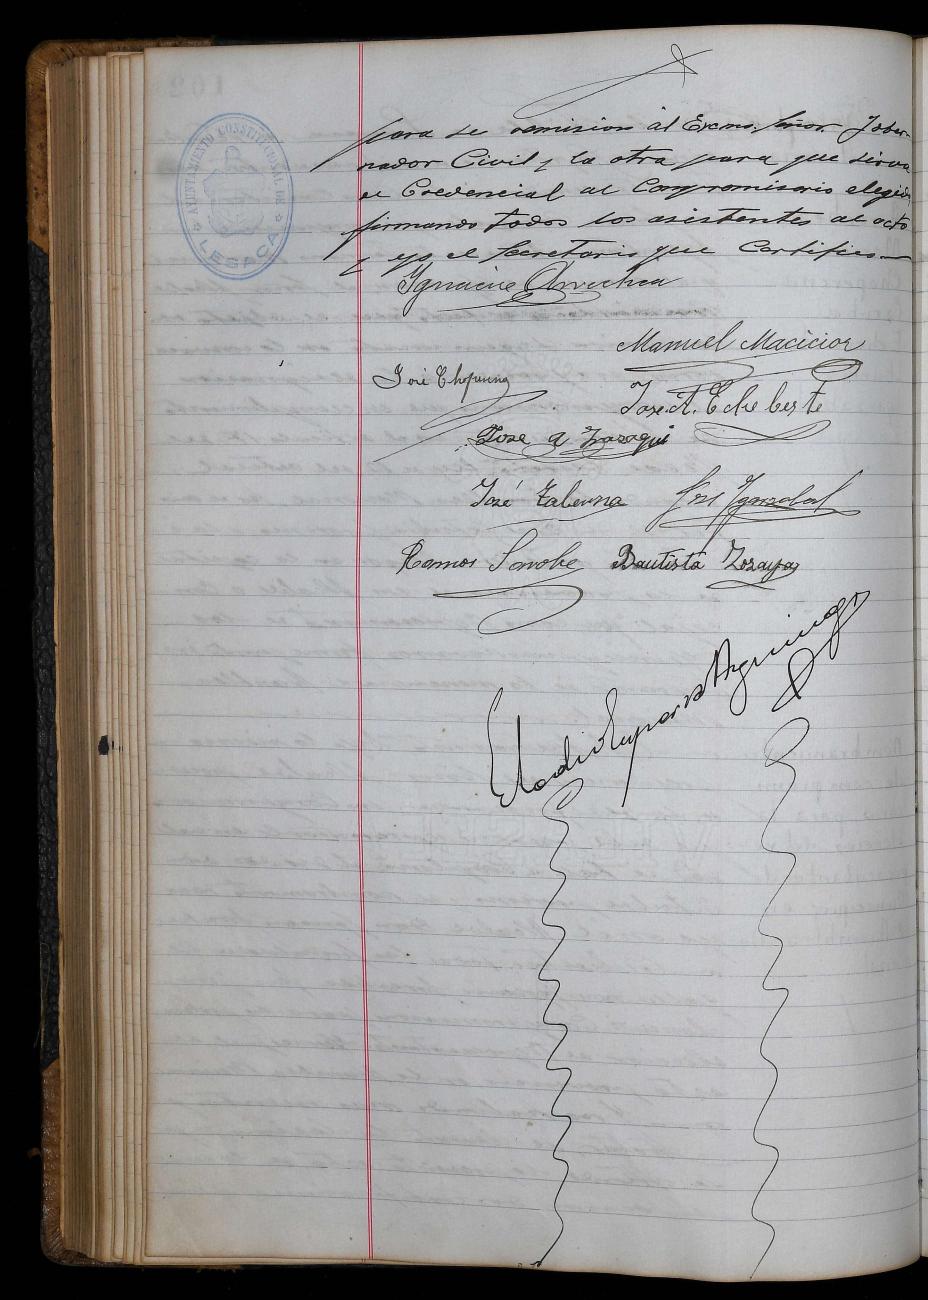 AYUNTAMIENTO CONSTITUCIONAL DE
LEGACA
para su remision al Excmo. Señor Gober-
nador Civil y la otra para que sirva
de Credencial al Compromisario elegido
firmando todos los asistentes al acto
y yo el Secretario que Certifico
Ignacio
Manuel Macicior
José
José A. Echeberte
Jose A
José Taberna
Ramos Bautista Zozaya
Eladio Esparza